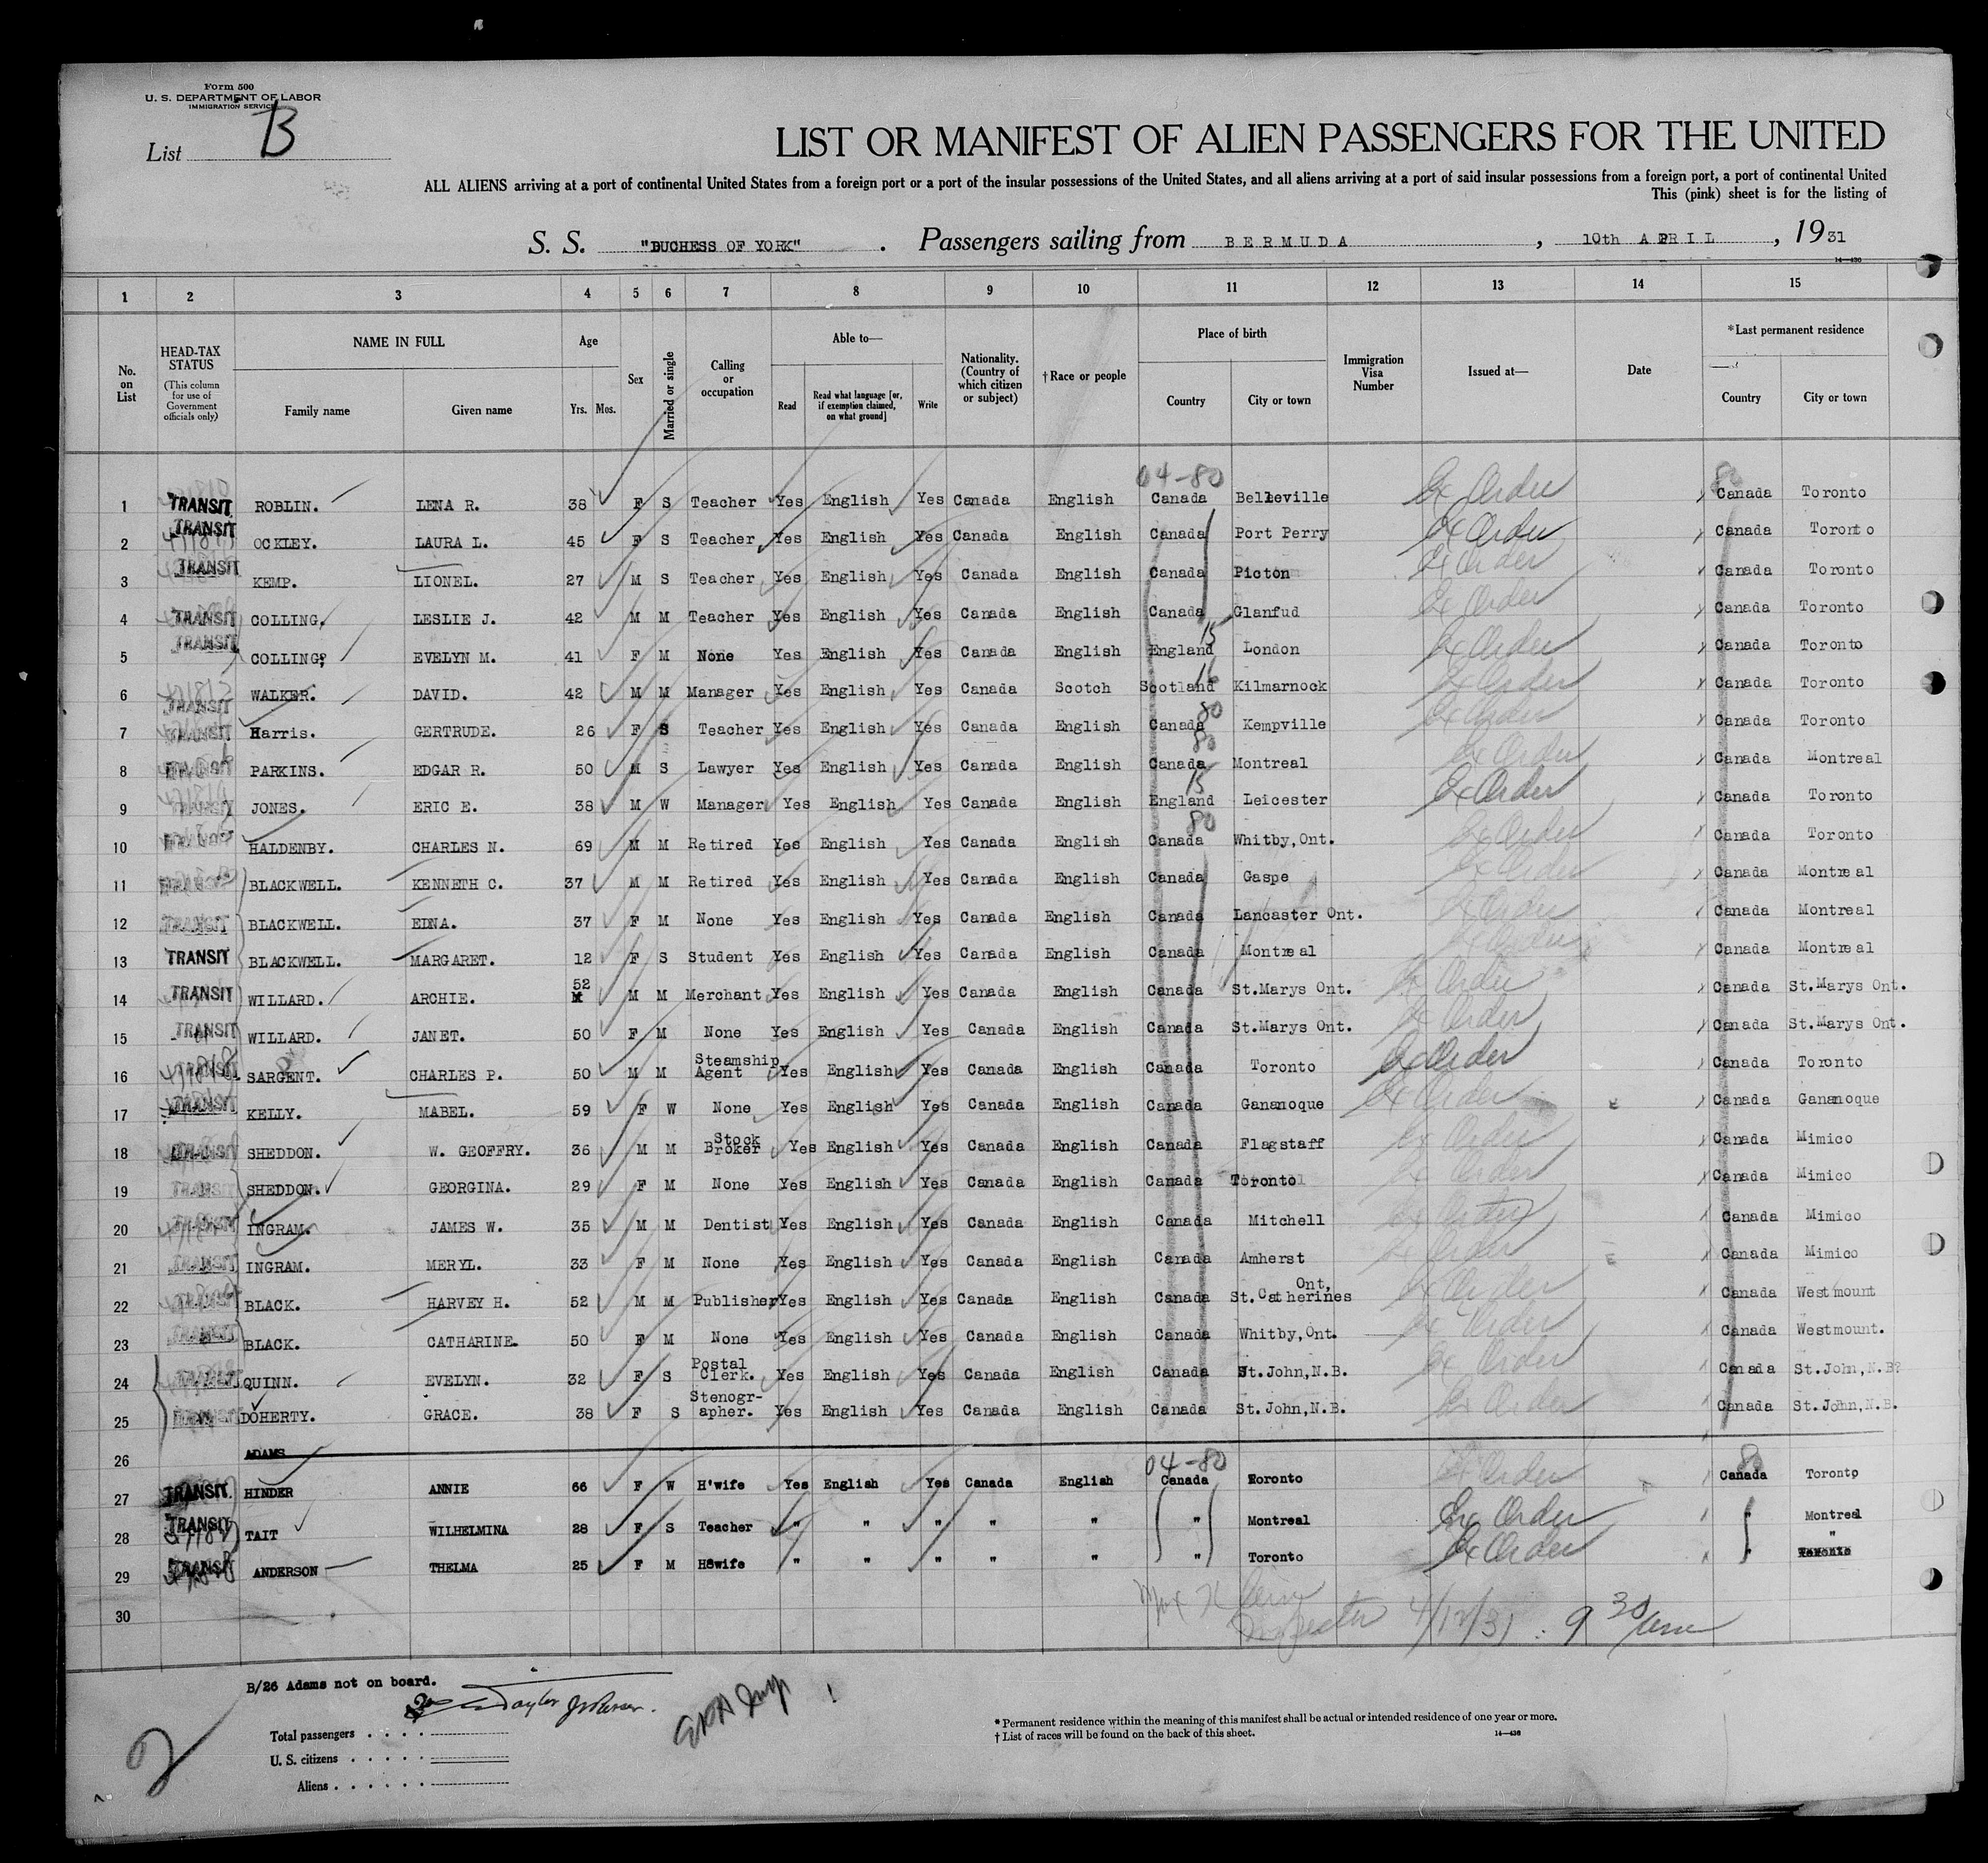 Form 500
U. S. DEPARTMENT OF LABOR
IMMIGRATION SERVICE
List B
LIST OR MANIFEST OF ALIEN PASSENGERS FOR THE UNITED
ALL ALIENS arriving at a port of continental United States from a foreign port or a port of the insular possessions of the United States, and all aliens arriving at a port of said insular possessions from a foreign port, a port of continental United
This (pink) sheet is for the listing of
S. S. "DUCHESS OF YORK" . Passengers sailing from BERMUDA , 10th APRIL , 1931
14—430
1 2 3 4 5 6 7 8 9 10 11 12 13 14 15
No. on List
HEAD-TAX STATUS (This column for use of Government officials only)
NAME IN FULL
Family name Given name
Age
Yrs. Mos.
Sex
Married or single
Calling or occupation
Able to—
Read
Read what language [or, if exemption claimed, on what ground]
Write
Nationality. (Country of which citizen or subject)
†Race or people
Place of birth
Country City or town
Immigration Visa Number
Issued at—
Date
*Last permanent residence
Country City or town
04-80 80
1 TRANSIT ROBLIN. LENA R. 38 F S Teacher Yes English Yes Canada English Canada Belleville Ex Order Canada Toronto
2 TRANSIT OCKLEY. LAURA L. 45 F S Teacher Yes English Yes Canada English Canada Port Perry Ex Order Canada Toronto
3 TRANSIT KEMP. LIONEL. 27 M S Teacher Yes English Yes Canada English Canada Picton Ex Order Canada Toronto
4 TRANSIT COLLING. LESLIE J. 42 M M Teacher Yes English Yes Canada English Canada Glanfud Ex Order Canada Toronto
5 TRANSIT COLLING? EVELYN M. 41 F M None Yes English Yes Canada English England 15 London Ex Order Canada Toronto
6 TRANSIT WALKER. DAVID. 42 M M Manager Yes English Yes Canada Scotch Scotland 16 Kilmarnock Ex Order Canada Toronto
7 TRANSIT Harris. GERTRUDE. 26 F S Teacher Yes English Yes Canada English Canada 80 Kempville Ex Order Canada Toronto
8 TRANSIT PARKINS. EDGAR R. 50 M S Lawyer Yes English Yes Canada English Canada 80 Montreal Ex Order Canada Montreal
9 TRANSIT JONES. ERIC E. 38 M W Manager Yes English Yes Canada English England 15 Leicester Ex Order Canada Toronto
10 TRANSIT HALDENBY. CHARLES N. 69 M M Retired Yes English Yes Canada English Canada 80 Whitby,Ont. Ex Order Canada Toronto
11 TRANSIT BLACKWELL. KENNETH C. 37 M M Retired Yes English Yes Canada English Canada Gaspe Ex Order Canada Montreal
12 TRANSIT BLACKWELL. EDNA. 37 F M None Yes English Yes Canada English Canada Lancaster Ont. Ex Order Canada Montreal
13 TRANSIT BLACKWELL. MARGARET. 12 F S Student Yes English Yes Canada English Canada Montreal Ex Order Canada Montreal
14 TRANSIT WILLARD. ARCHIE. 52 M M Merchant Yes English Yes Canada English Canada St.Marys Ont. Ex Order Canada St.Marys Ont.
15 TRANSIT WILLARD. JANET. 50 F M None Yes English Yes Canada English Canada St.Marys Ont. Ex Order Canada St.Marys Ont.
16 TRANSIT SARGENT. CHARLES P. 50 M M Steamship Agent Yes English Yes Canada English Canada Toronto Ex Order Canada Toronto
17 TRANSIT KELLY. MABEL. 59 F W None Yes English Yes Canada English Canada Gananoque Ex Order Canada Gananoque
18 TRANSIT SHEDDON. W. GEOFFRY. 36 M M Stock Broker Yes English Yes Canada English Canada Flagstaff Ex Order Canada Mimico
19 TRANSIT SHEDDON. GEORGINA. 29 F M None Yes English Yes Canada English Canada Toronto Ex Order Canada Mimico
20 TRANSIT INGRAM. JAMES W. 35 M M Dentist Yes English Yes Canada English Canada Mitchell Ex Order Canada Mimico
21 TRANSIT INGRAM. MERYL. 33 F M None Yes English Yes Canada English Canada Amherst Ex Order Canada Mimico
22 TRANSIT BLACK. HARVEY H. 52 M M Publisher Yes English Yes Canada English Canada St.Catherines Ont, Ex Order Canada Westmount
23 TRANSIT BLACK. CATHARINE. 50 F M None Yes English Yes Canada English Canada Whitby,Ont. Ex Order Canada Westmount.
24 TRANSIT QUINN. EVELYN. 32 F S Postal Clerk. Yes English Yes Canada English Canada St.John,N.B. Ex Order Canada St.John,N.B?
25 TRANSIT DOHERTY. GRACE. 38 F S Stenogr-apher. Yes English Yes Canada English Canada St.John,N.B. Ex Order Canada St.John,N.B.
26 ADAMS
04-80 80
27 TRANSIT HINDER ANNIE 66 F W H'wife Yes English Yes Canada English Canada Toronto Ex Order Canada Toronto
28 TRANSIT TAIT WILHELMINA 28 F S Teacher " " " " " " Montreal Ex Order " Montreal
29 TRANSIT ANDERSON THELMA 25 F M H8wife " " " " " " Toronto Ex Order " " Toronto
30
Inspector 4/12/31 . 9 30
B/26 Adams not on board.
Total passengers
U. S. citizens
Aliens
2
*Permanent residence within the meaning of this manifest shall be actual or intended residence of one year or more.
†List of races will be found on the back of this sheet.
14—430